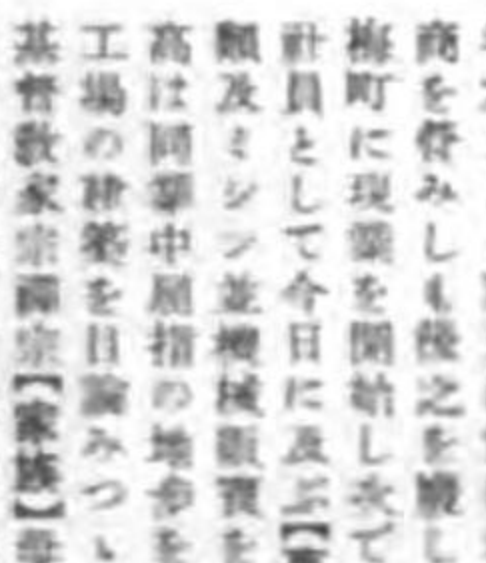 商を營みしも後之を廢し
梅町に現業を開始し次で
社員として今日に及ぶ【
類及ミシン並機械販賣を
高は同業中屈指の地歩を
工場の建築を目論みつゝ
基督敎家宗禪宗【家族】母